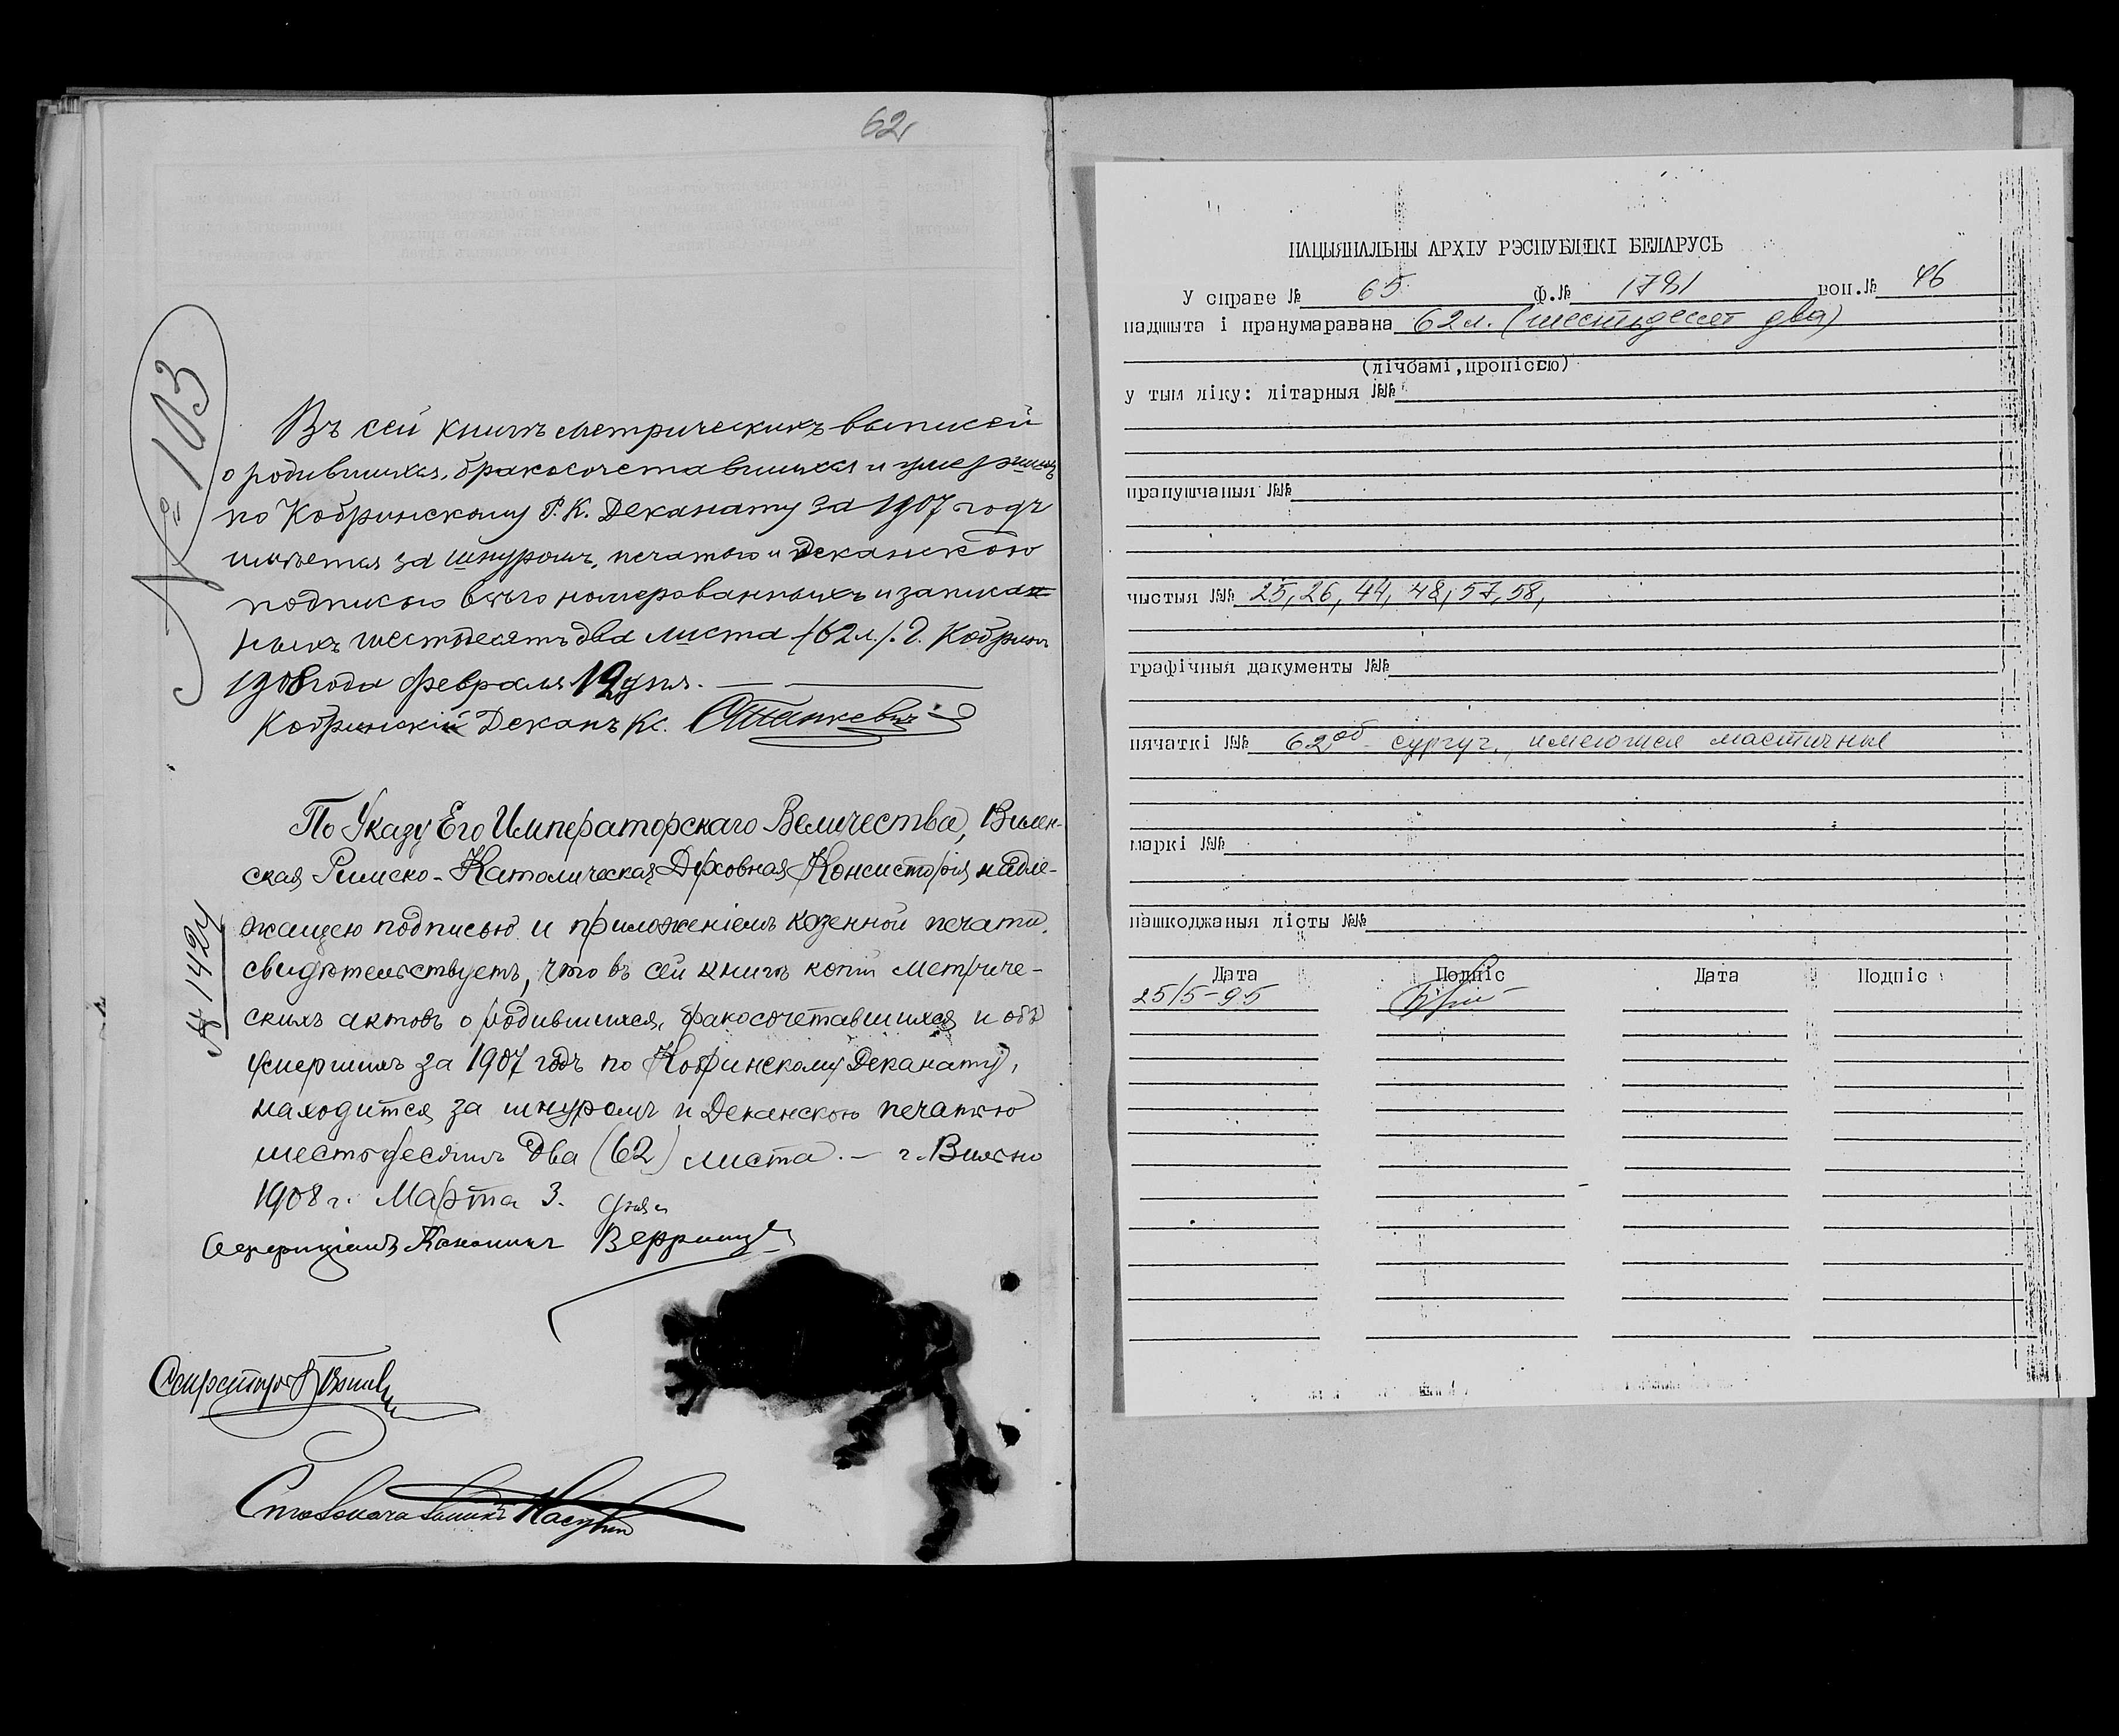 62
№ 103
Въ сей книгѣ метрическихъ выписей
о родившихся, бракосочетавшихся и умершихъ
по Кобринскому Р. К. Деканату за 1907 годъ
имѣется за шнуромъ, печатью и Деканскою
подписью всего номерованныхъ и записан
ныхъ шестьдесятъ два листа /62 л./. Г. Кобринъ
1908 года Февраля 12 дня.
Кобринскій Деканъ Кс.
№ 1424
По Указу Его Императорскаго Величества, Вилен-
ская Римско-Католическая Духовная Консисторія надле-
жащею подписью и приложеніемъ казенной печати,
свидѣтельствуетъ, что въ сей книгѣ копій метриче-
скихъ актовъ о родившихся, бракосочетавшихся и объ
умершихъ за 1907 годъ по Кобринскому Деканату,
находится за шнуромъ и Деканскою печатью
шестьдесятъ два (62) листа. — г. Вильно
1908 г. Марта 3. дня
Каноникъ
Секретарь
Столоначальникъ
НАЦЫЯНАЛЬНЫ АРХІУ РЭСПУБЛІКІ БЕЛАРУСЬ
У справе № 65 Ф.№ 1781 воп.№ 46
падшыта і пранумаравана 62 л. (шестьдесят два)
(лічбамі,пропіссю)
у тым ліку: літарныя №№
прапушчаныя №№
чыстыя №№ 25, 26, 44, 48, 57, 58,
графічныя дакументы №№
пячаткі №№ 62 об - сургуч., имеются мастичные
маркі №№
пашкоджаныя лісты №№
Дата Подпіс Дата Подпіс
25/5-95